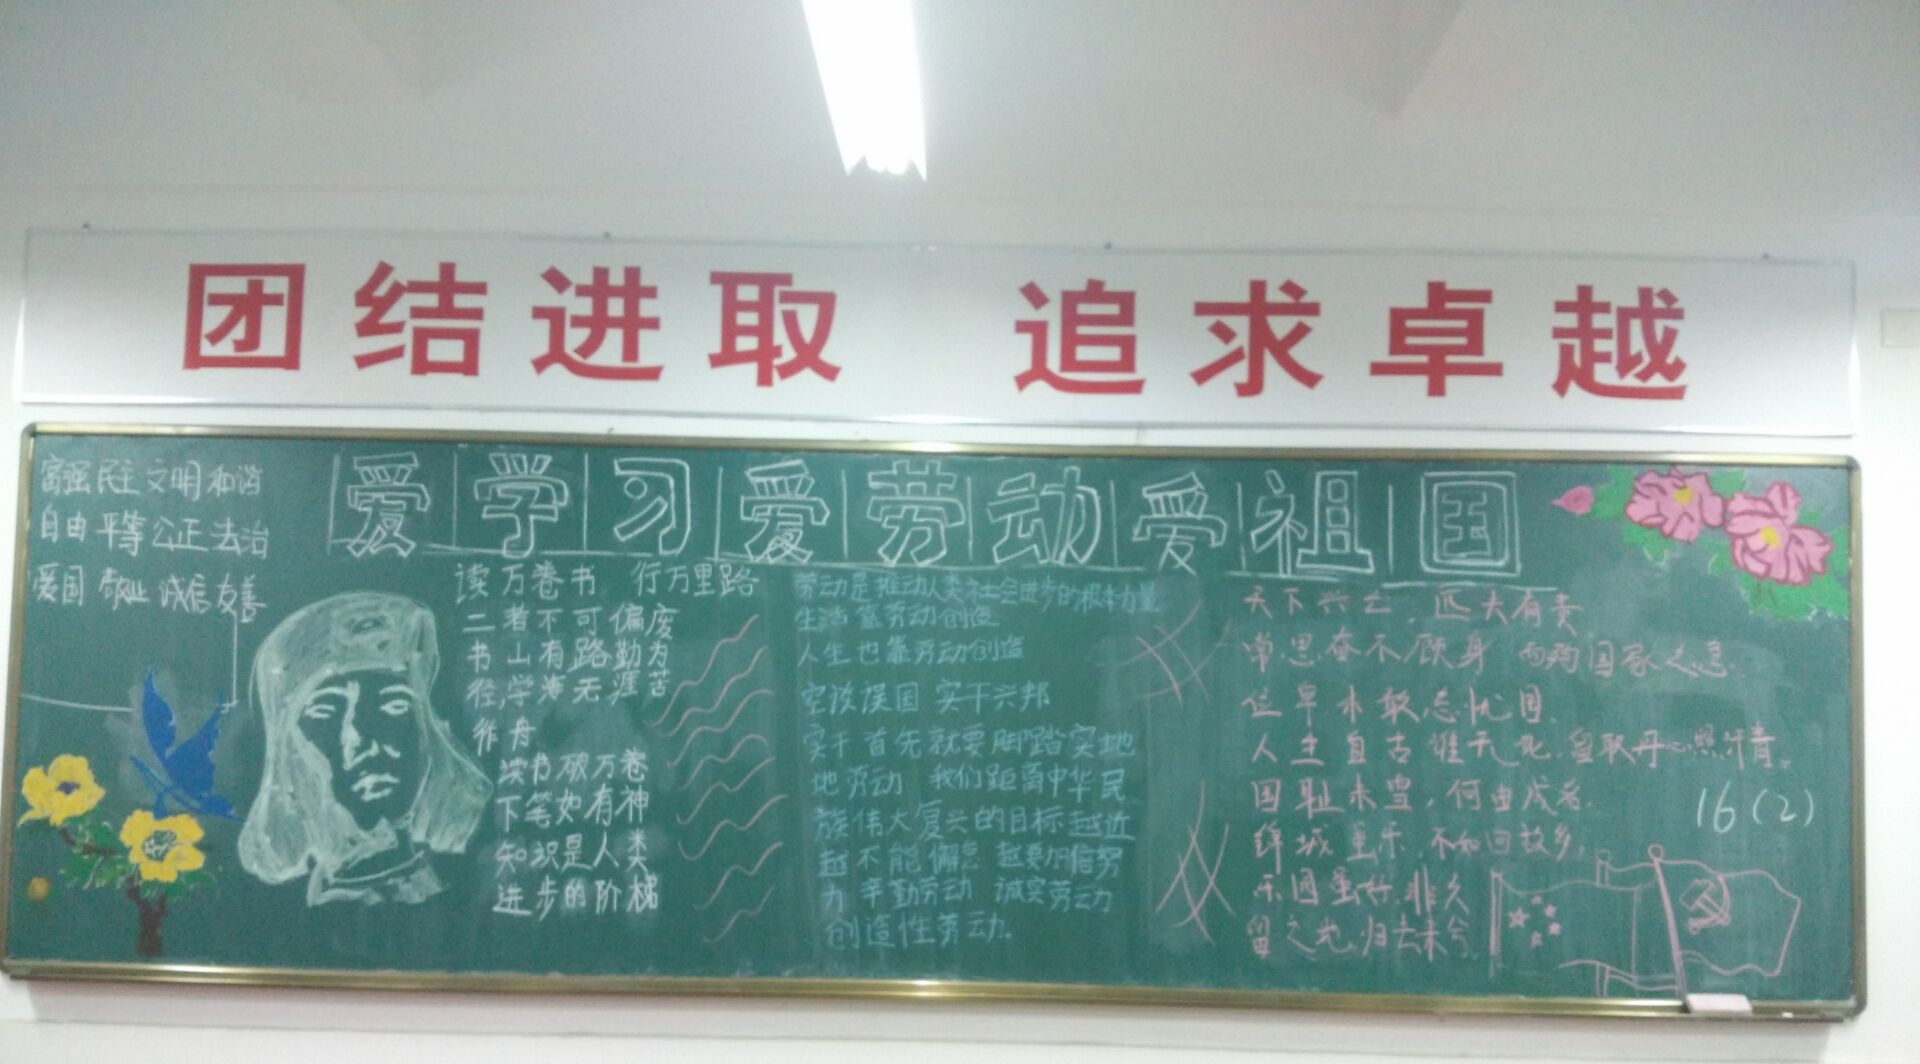 团结进取 追求卓越
富强民主文明和谐
自由平等公正法治
爱国敬业诚信友善
爱学习爱劳动爱祖国
读万卷书 行万里路
二者不可偏废
书山有路勤为
径,学海无涯苦
作舟
读书破万卷
下笔如有神
知识是人类
进步的阶梯
劳动是推动人类社会进步的根本力量
生活靠劳动创造
人生也靠劳动创造
空谈误国 实干兴邦
实干首先就要脚踏实地
地劳动 我们距离中华民
族伟大复兴的目标越近
越不能懈怠 越要加倍努
力 辛勤劳动 诚实劳动
创造性劳动.
天下兴亡,匹夫有责
常思奋不顾身 而殉国家之急.
位卑未敢忘忧国.
人生自古谁无死,留取丹心照汗青。
国耻未雪,何由成名.
锦城虽乐,不如回故乡,
乐园虽好,非久
留之地,归去来兮
16(2)